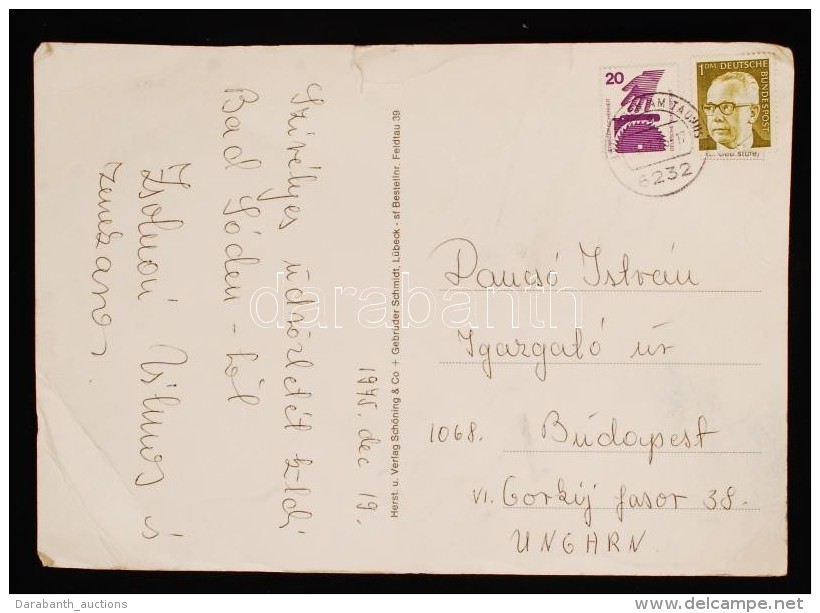 Szívélyes üdvözletét küldi
Bad Sóden - ből
Zsolnai Vilmos és
zenekara
1975. dec 19.
Herst. u. Verlag Schöning & Co + Gebrüder Schmidt, Lübeck - sf Bestellnr. Feldtau 39
20
1 DM DEUTSCHE
BUNDESPOST
AM TAUNUS
6232
Dancsó István
Igazgató úr
1068. Budapest
VI. Gorkij fasor 38.
UNGARN
darabanth
Darabanth_auctions
postcards.delcampe.net